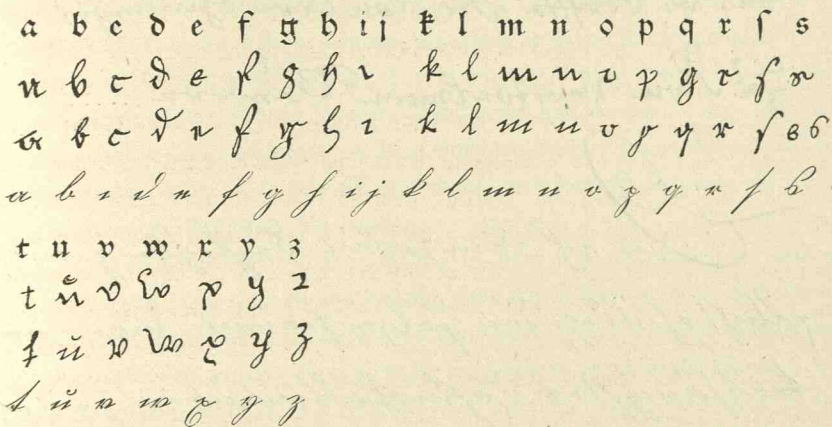 a b c d e f g h i j k l m n o p q r ſ s
a b c d e f g h i k l m n o p q r ſ s
a b c d e f g h i k l m n o p q r ſ s s
a b c d e f g h i j k l m n o p q r ſ s
t u v w x y z
t ů v w x y z
t ŭ v w x y z
t ŭ v w x y z